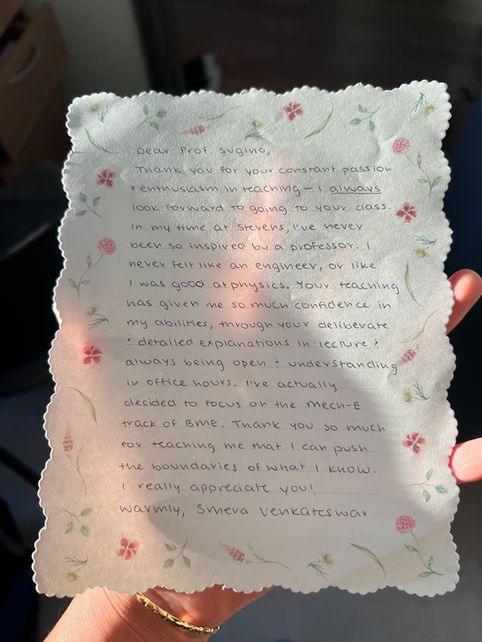 Dear Prof. Sugino,
Thank you for your constant passion
+ enthusiasm in teaching - I always
look forward to going to your class.
In my time at Stevens, I've never
been so inspired by a professor. I
never felt like an engineer, or like
I was good at physics. Your teaching
has given me so much confidence in
my abilities, through your deliberate
& detailed explanations in lecture &
always being open & understanding
in office hours. I've actually
decided to focus on the Mech-E
track of BME. Thank you so much
for teaching me that I can push
the boundaries of what I know.
I really appreciate you!
Warmly, Smera Venkateswar